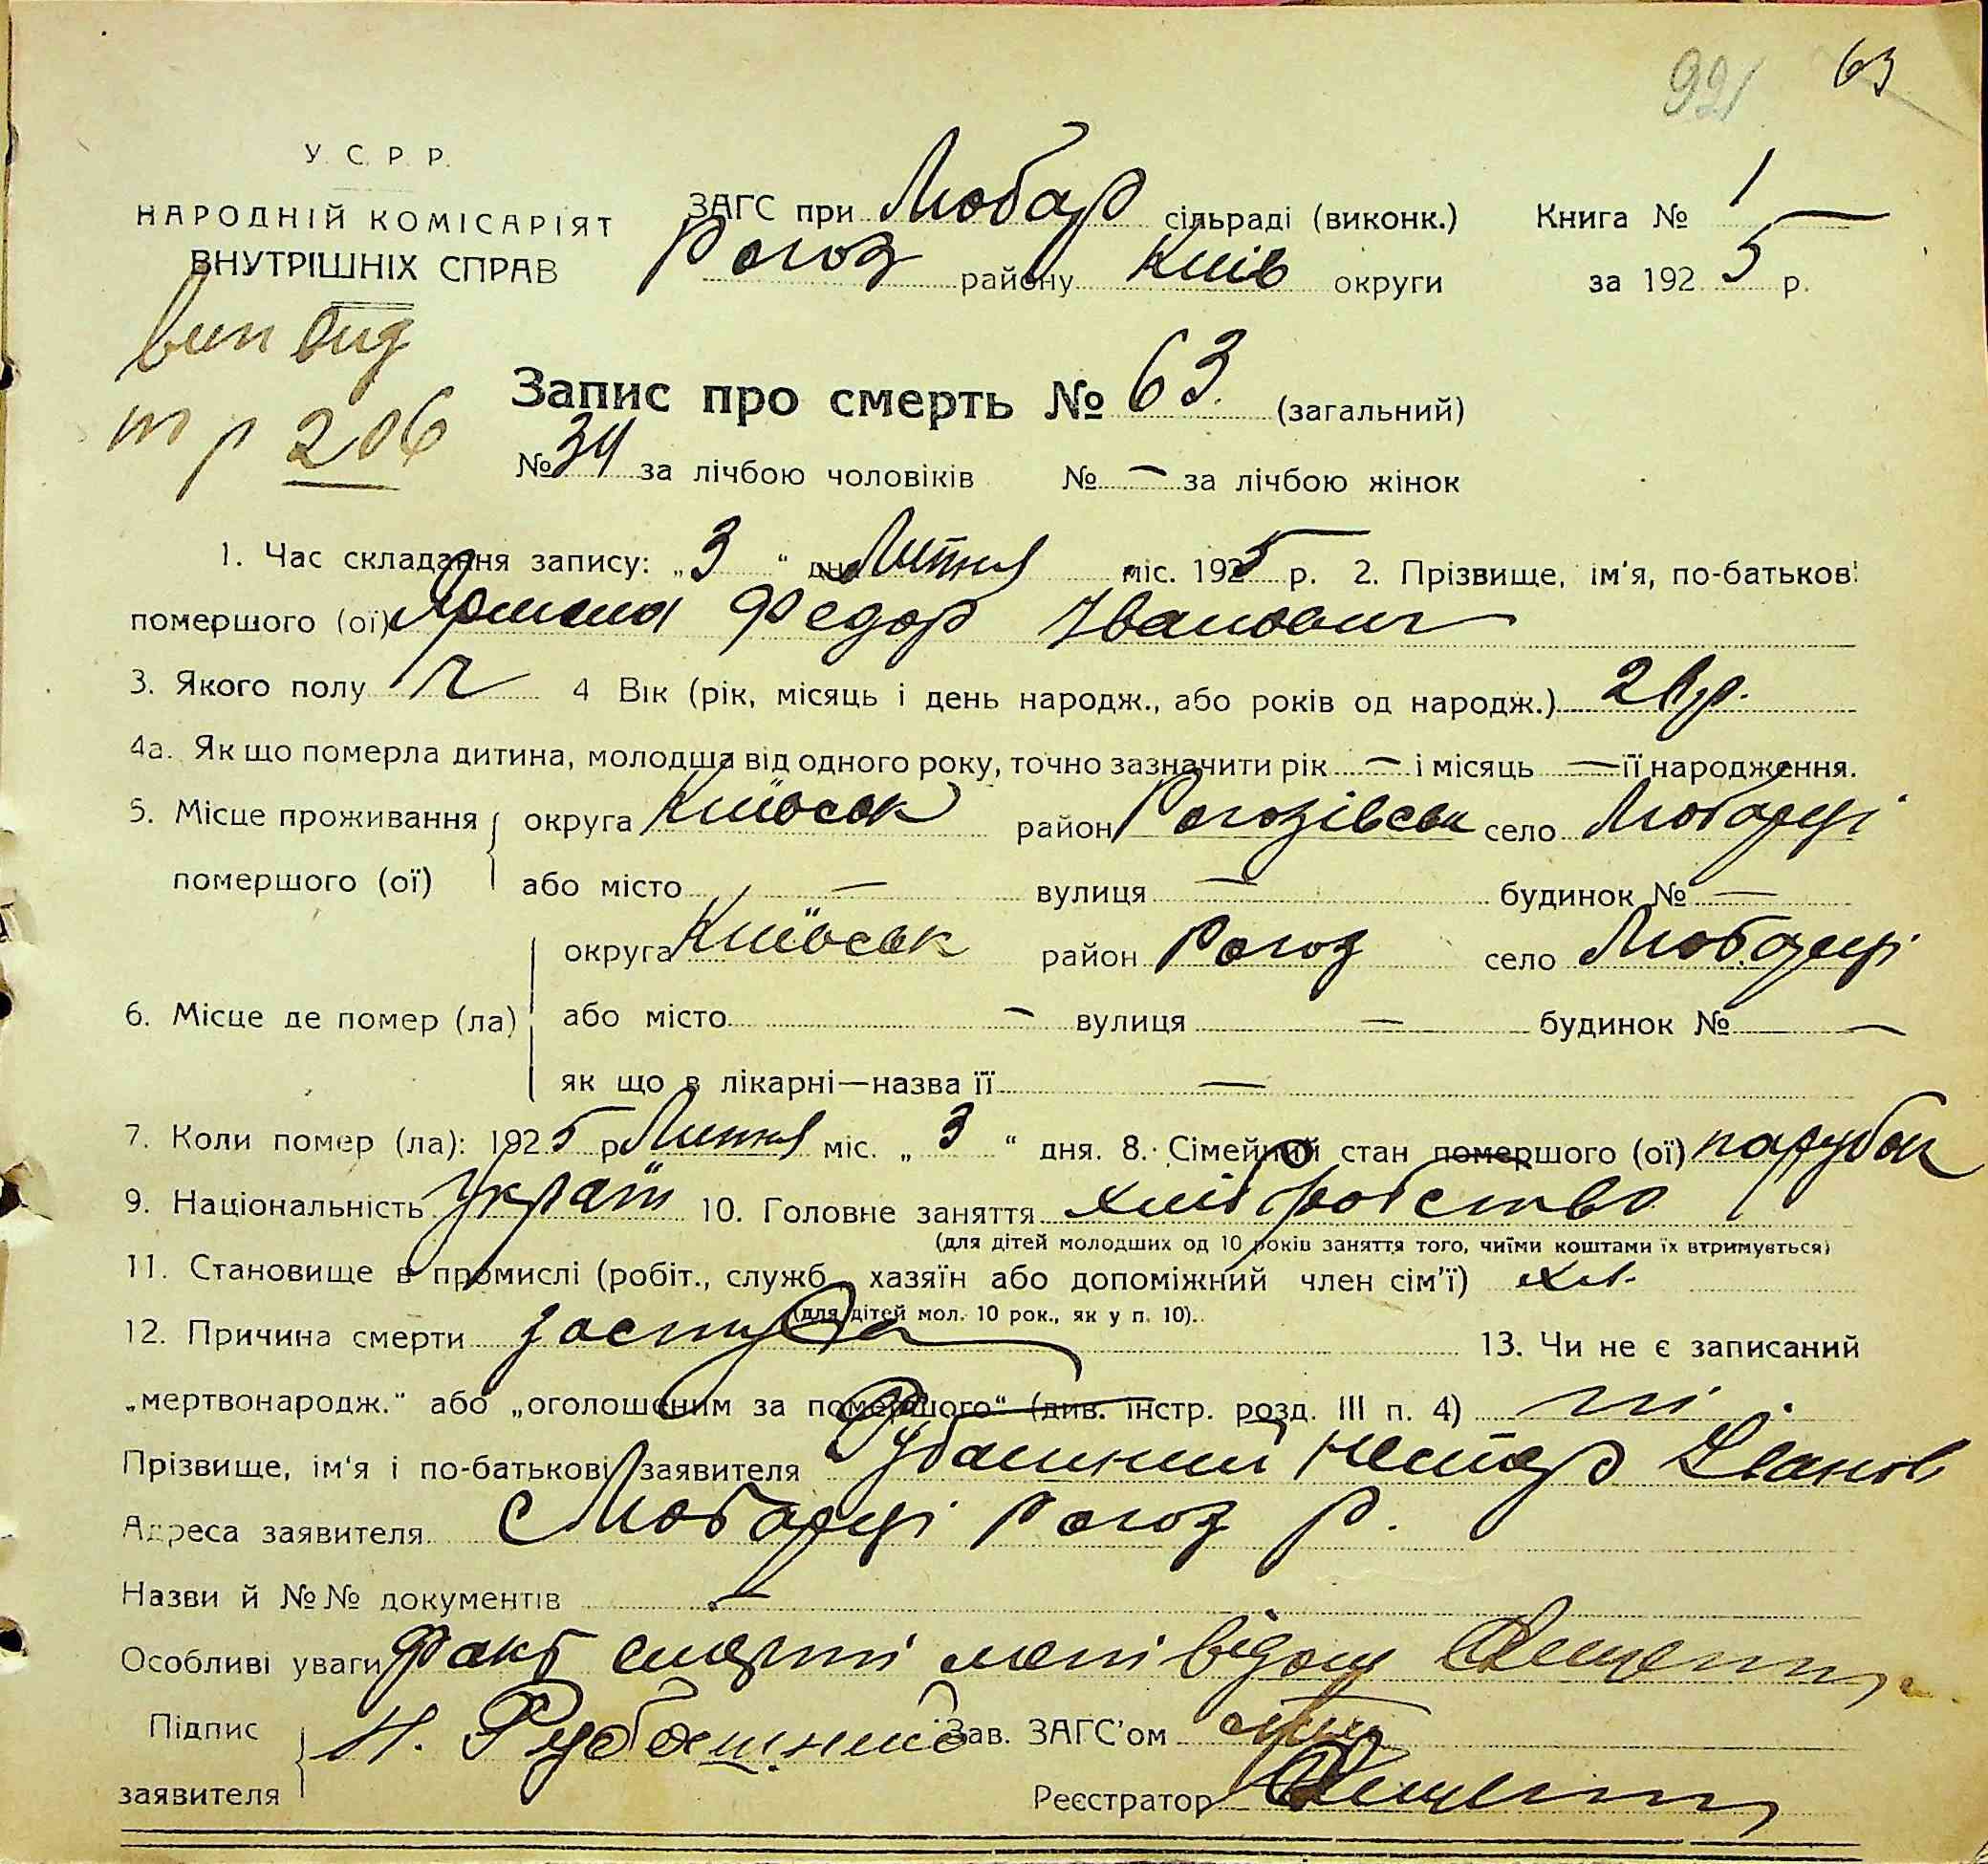 921 63
У. С. Р. Р.
НАРОДНІЙ КОМІСАРІЯТ
ВНУТРІШНІХ СПРАВ
ЗАГС при Любар сільраді (виконк.)
Рогоз району Київ округи
Книга № 1
за 1925 р.
вип вид
206
Запис про смерть № 63 (загальний)
№ 34 за лічбою чоловіків № — за лічбою жінок
1. Час складання запису: „3“ дня Лютня міс. 1925 р. 2. Прізвище, ім'я, по-батькові
помершого (ої) Федор Іванович
3. Якого полу ч 4 Вік (рік, місяць і день народж., або років од народж.) 21 р.
4а. Як що померла дитина, молодша від одного року, точно зазначити рік — і місяць — її народження.
5. Місце проживання округа Київськ район Рогозівськ село Любарці
помершого (ої) або місто — вулиця — будинок № —
округа Київськ район Рогоз село Любарці
6. Місце де помер (ла) або місто — вулиця — будинок № —
як що в лікарні—назва її —
7. Коли помер (ла): 1925 р. Лютня міс. „3“ дня. 8. Сімейний стан помершого (ої) парубок
9. Національність Україн 10. Головне заняття хліборобство
(для дітей молодших од 10 років заняття того, чиїми коштами їх втримується)
11. Становище в промислі (робіт., служб., хазяїн або допоміжний член сім'ї)
(для дітей мол. 10 рок., як у п. 10).
12. Причина смерти застуда 13. Чи не є записаний
„мертвонародж.“ або „оголошеним за помершого“ (див. інстр. розд. III п. 4) ні
Прізвище, ім'я і по-батькові заявителя Рубашний Нестер Іванов
Адреса заявителя с Любарці Рогоз р.
Назви й №№ документів —
Особливі уваги Факт смерти мені відом
Підпис
заявителя
Н. Рубашний
Зав. ЗАГС'ом
Реєстратор